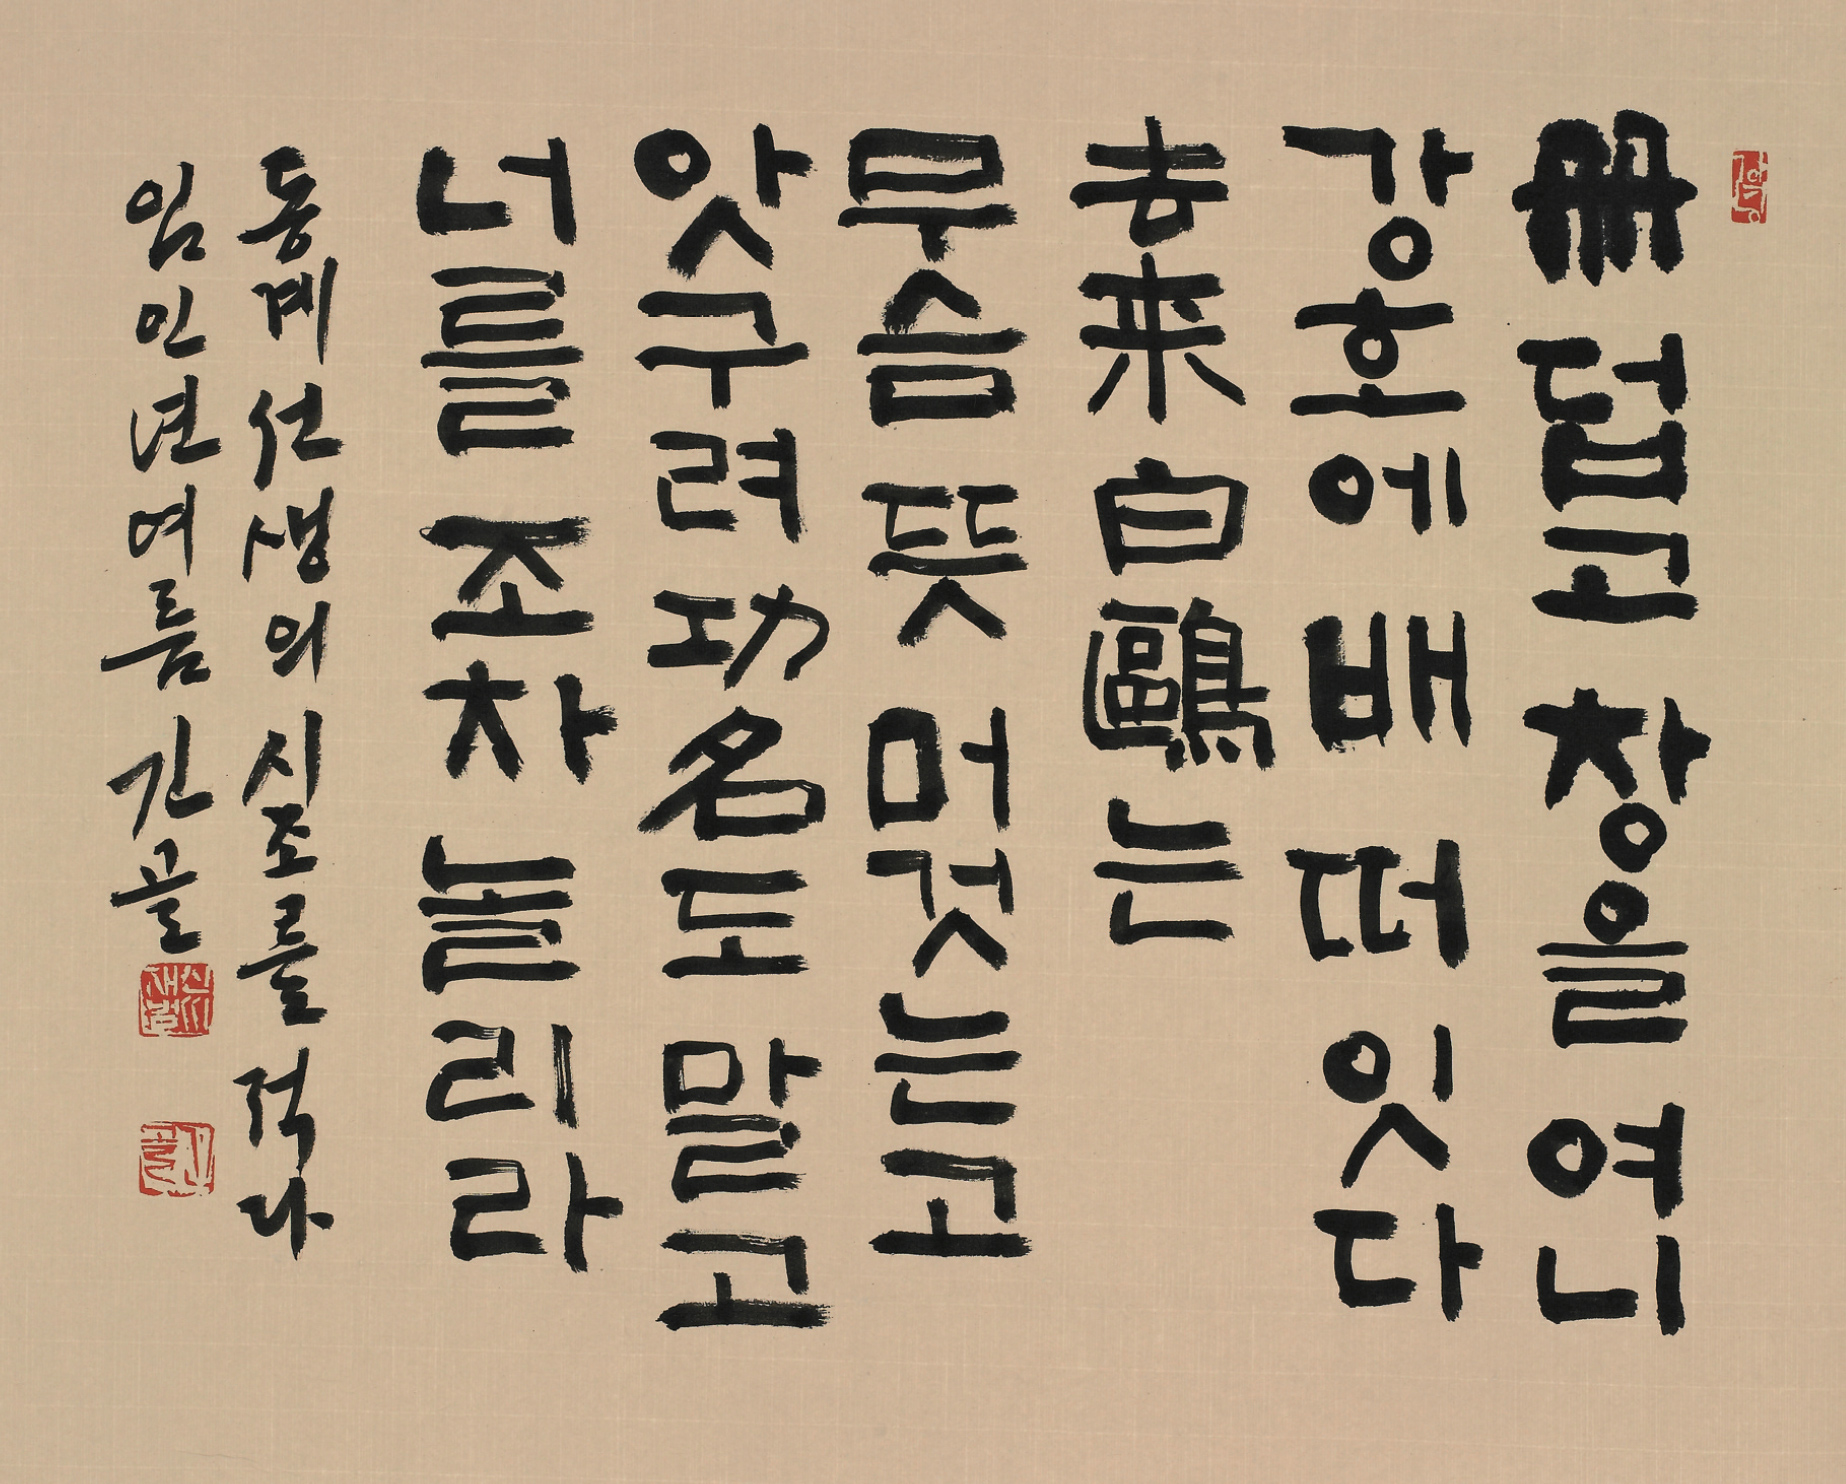 冊 덥고 창을 여니
강호에 배 떠 잇다
去来 白鷗는
무슴 뜻 머것는고
앗구려 功名도 말고
너를 조차 놀리라
동계 선생의 시조를 적다
임인년 여름 긴골